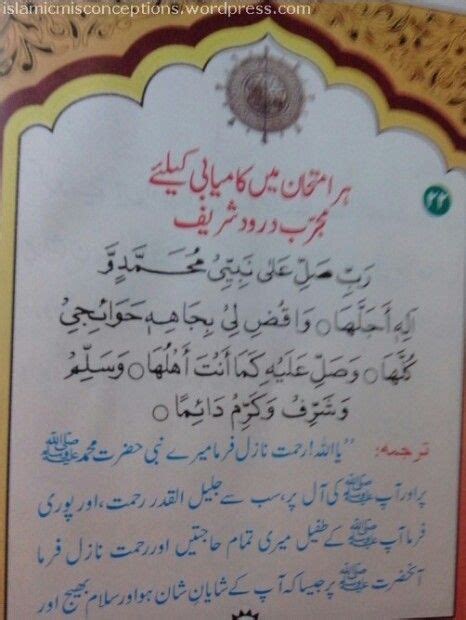 islamicmisconceptions.wordpress.com
ہر امتحان میں کامیابی کیلئے
۲۲
مجرّب درود شریف
رَبِّ صَلِّ عَلٰى نَبِيِّیْ مُحَمَّدٍ وَّ
اٰلِهٖ أَجَلَّهَا ○ وَاقْضِ لِیْ بِجَاهِهٖ حَوَائِجِیْ
كُلَّهَا ○ وَصَلِّ عَلَيْهِ كَمَا أَنْتَ أَهْلُهَا ○ وَسَلِّمْ
وَشَرِّفْ وَكَرِّمْ دَائِمًا ○
ترجمہ: ”یا اللہ! رحمت نازل فرما میرے نبی حضرت محمد ﷺ
پر اور آپ ﷺ کی آل پر، سب سے جلیل القدر رحمت، اور پوری
فرما آپ ﷺ کے طفیل میری تمام حاجتیں اور رحمت نازل فرما
آنحضرت ﷺ پر جیسا کہ آپ کے شایانِ شان ہو اور سلام بھیج اور